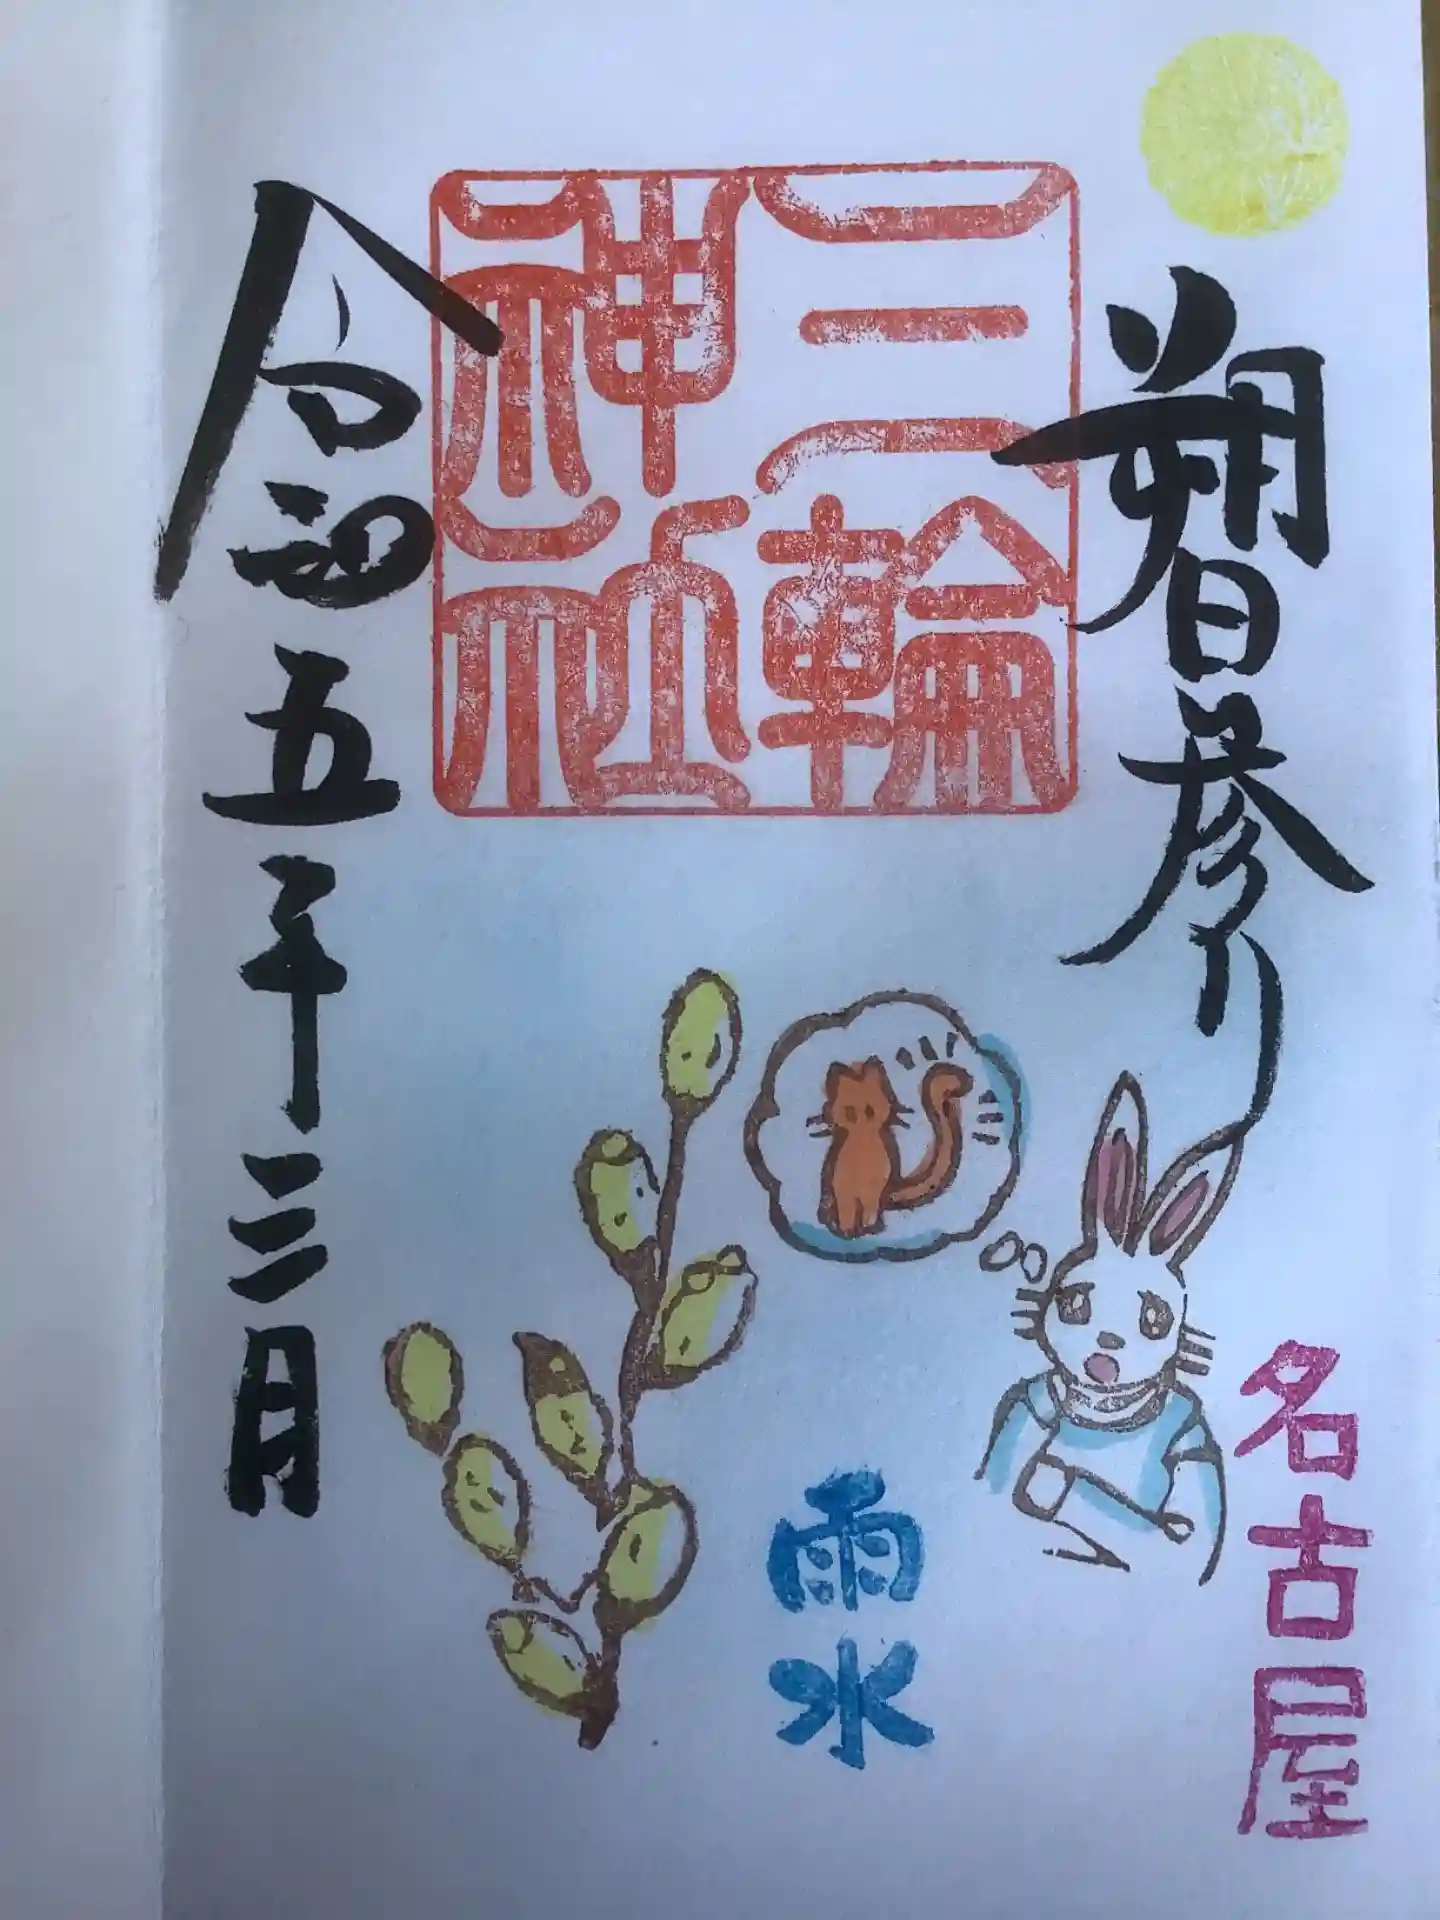 朔日参り
名古屋
三輪
神社
雨水
令和五年二月